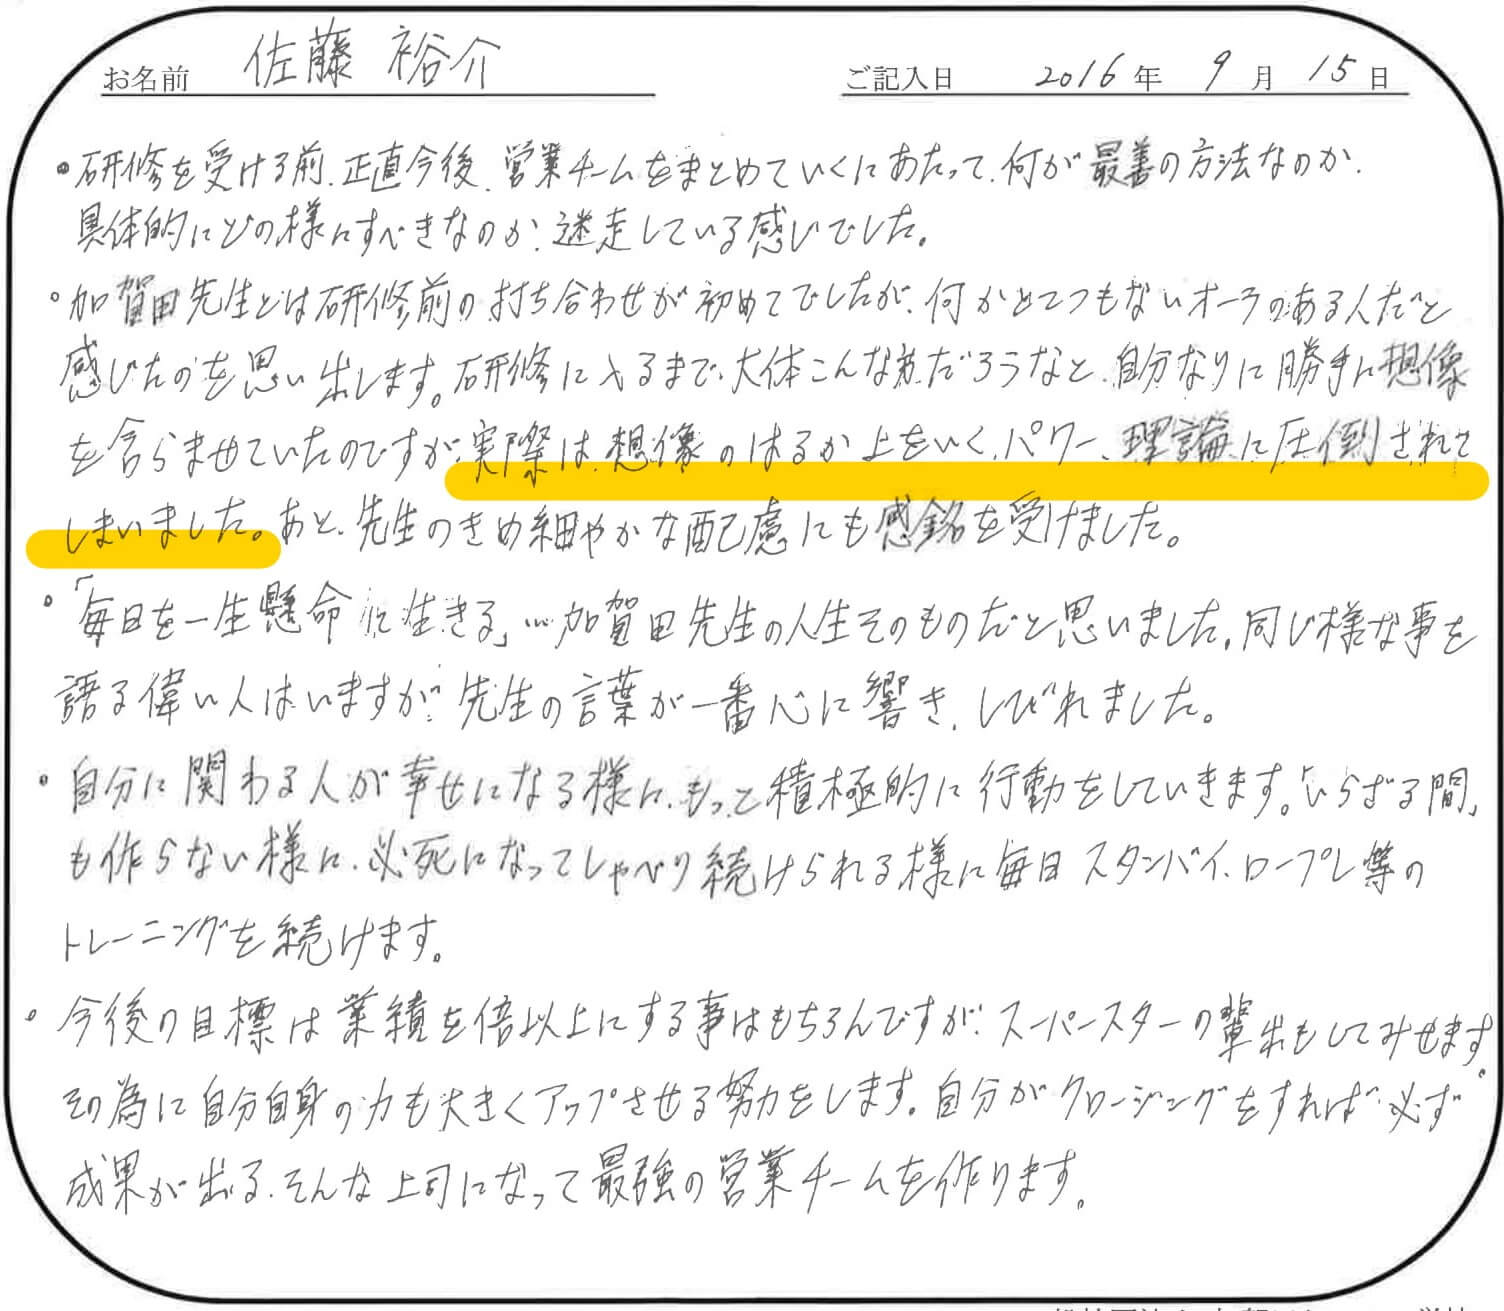 お名前 佐藤 裕介 ご記入日 2016年 9月 15日
・研修を受ける前、正直今後、営業チームをまとめていくにあたって、何が最善の方法なのか、
具体的にどの様にすべきなのか、迷走している感じでした。
・加賀田先生とは研修前の打ち合わせが初めてでしたが、何かとてつもないオーラのある人だと
感じたのを思い出します。研修に入るまで、大体こんな感だろうなと、自分なりに勝手に想像
を含らませていたのですが、実際は、想像のはるか上をいく、パワー、理論に圧倒されて
しまいました。あと、先生のきめ細やかな配慮にも感銘を受けました。
・「毎日を一生懸命に生きる」…加賀田先生の人生そのものだと思いました。同じ様な事を
語る偉い人はいますが、先生の言葉が一番心に響き、しびれました。
・自分に関わる人が幸せになる様に、もっと積極的に行動をしていきます。「いらざる間」
も作らない様に、必死になってしゃべり続けられる様に毎日スタンバイ、ロープレ等の
トレーニングを続けます。
・今後の目標は業績を倍以上にする事はもちろんですが、スーパースターの輩出もしてみせます。
その為に自分自身の力も大きくアップさせる努力をします。自分がクロージングをすれば、必ず
成果が出る、そんな上司になって最強の営業チームを作ります。